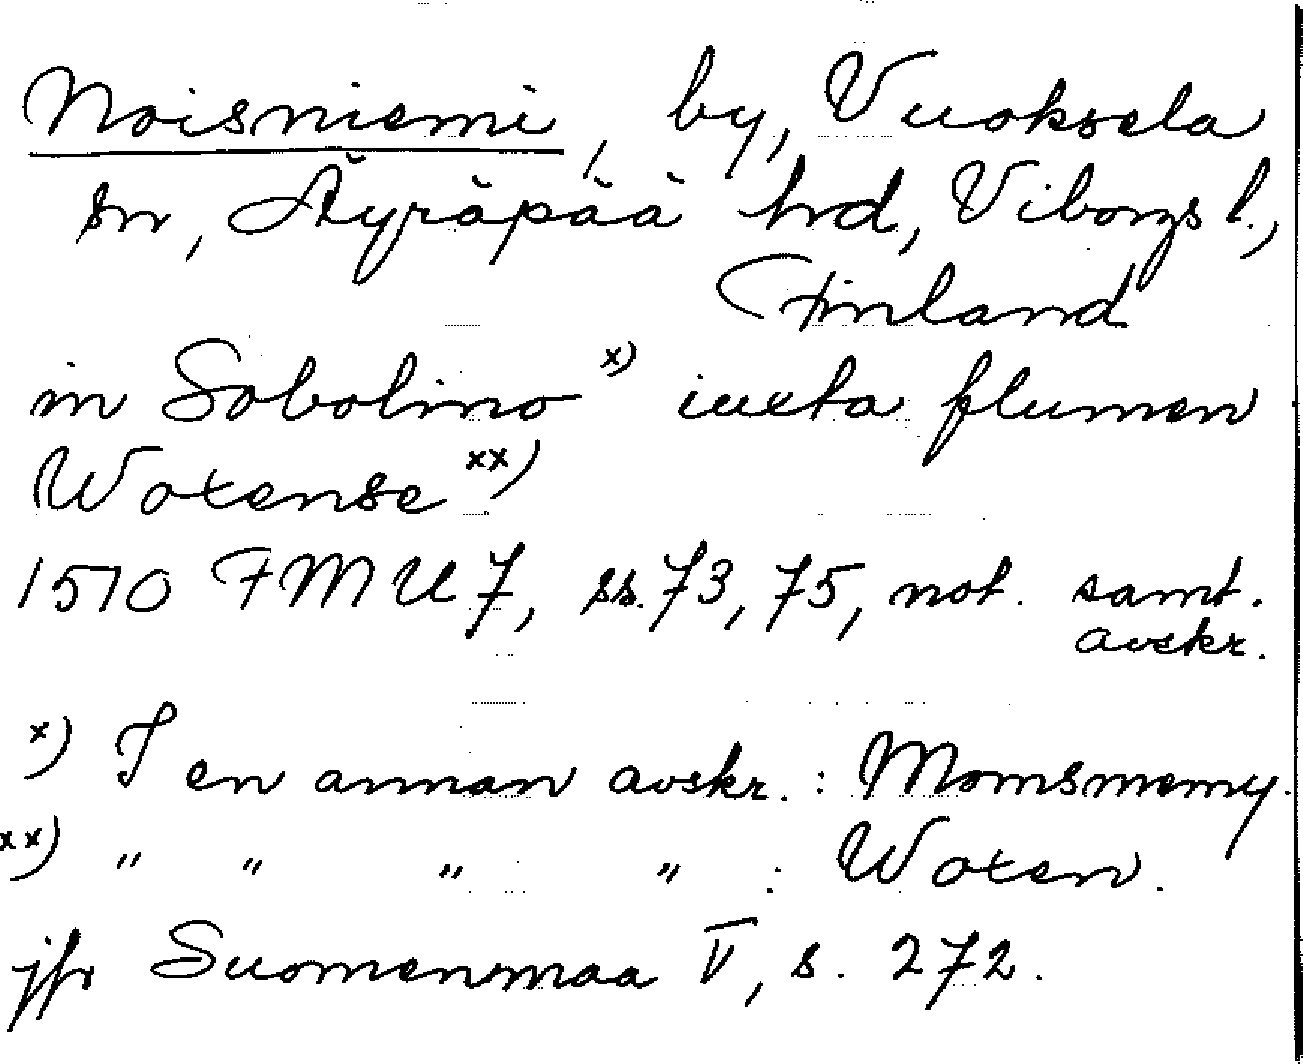 Noisniemi, by, Vuoksela
sn, Äyräpää hrd, Viborgs l.,
Finland
in Sobolino x) iuxta flumen
Woxense xx)
1510 FMU 7, ss. 73, 75, not. samt.
avskr.
x) I en annan avskr. : Momsmemy.
xx) " " " " : Woxen.
jfr Suomenmaa V, s. 272.